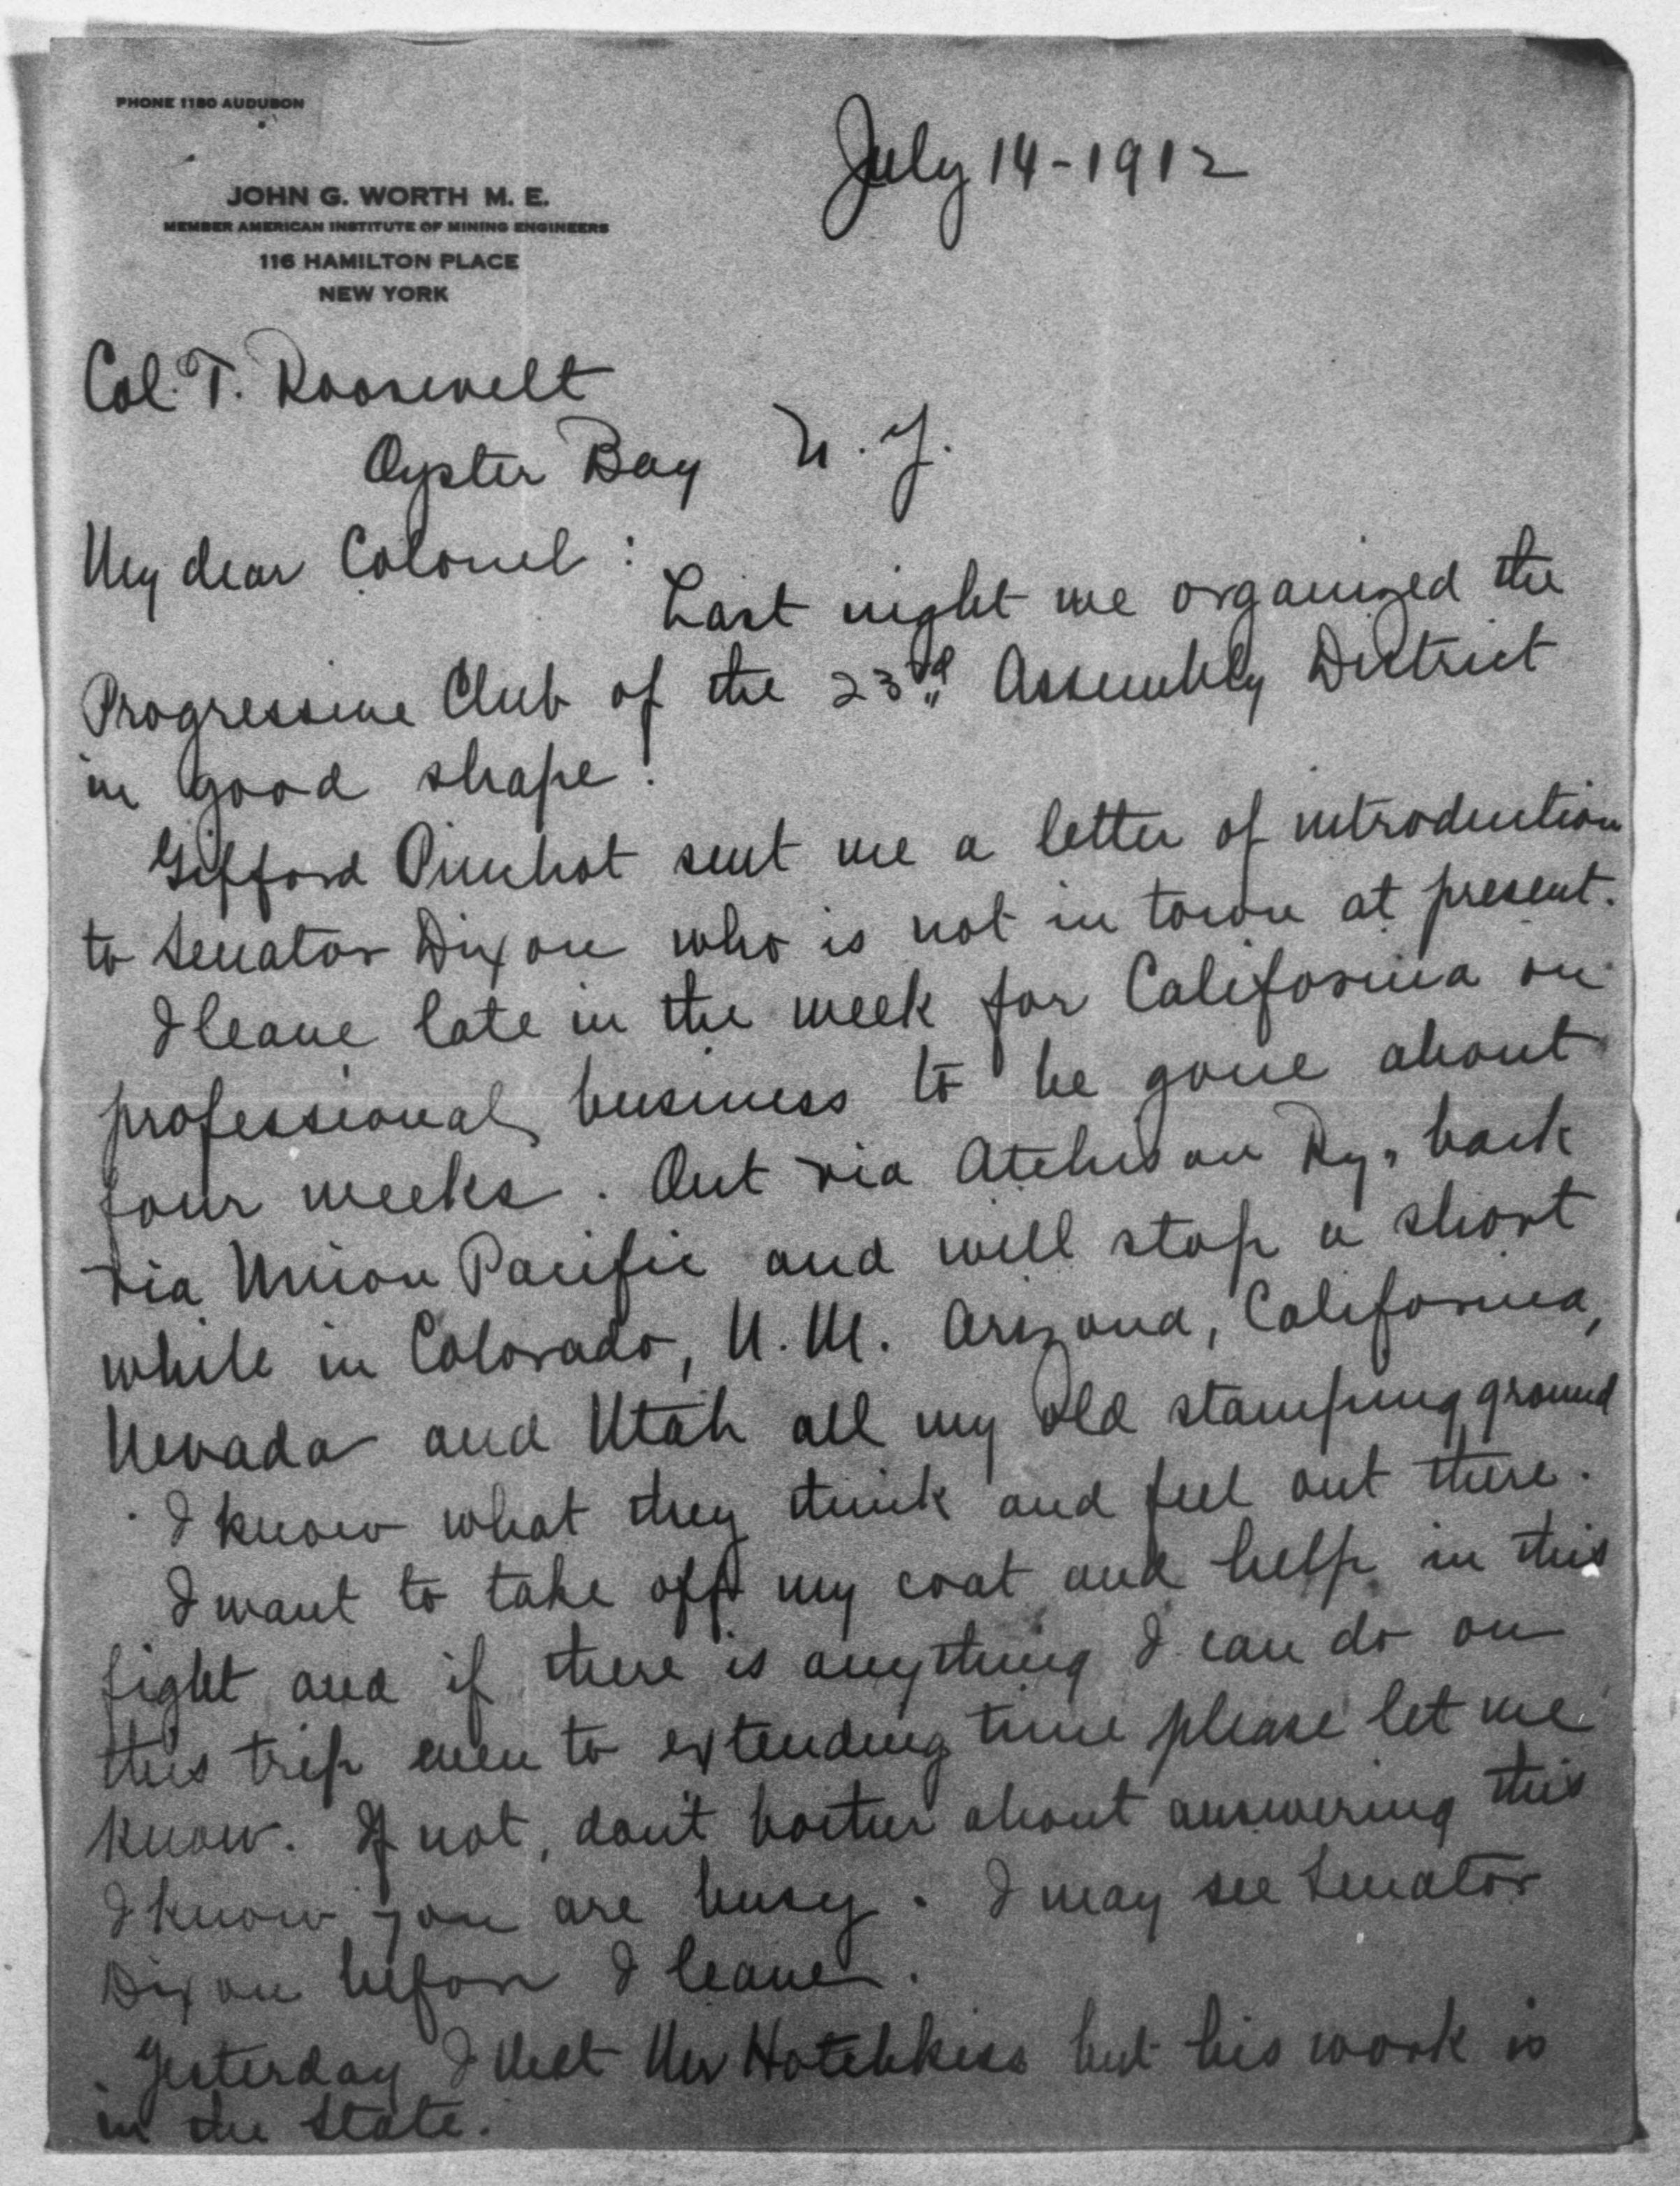 PHONE 1180 AUDUBON
July 14-1912
JOHN G. WORTH M. E.
MEMBER AMERICAN INSTITUTE OF MINING ENGINEERS
116 HAMILTON PLACE
NEW YORK
Col. T. Roosevelt
Oyster Bay N. Y.
My dear Colonel :
Last night we organized the
Progressive Club of the 23rd Assembly District
in good shape!
Gifford Pinchot sent me a letter of introduction
to Senator Dixon who is not in town at present.
I leave late in the week for California on
professional business to be gone about
four weeks. Out via Atchison Ry, back
via Union Pacific and will stop a short
while in Colorado, N. M. Arizona, California,
Nevada and Utah all my old stamping ground
I know what they think and feel out there.
I want to take off my coat and help in this
fight and if there is anything I can do on
this trip even to extending time please let me
know. If not, don't bother about answering this
I know you are busy. I may see Senator
Dixon before I leave.
Yesterday I met Mr Hotchkiss but his work is
in the State.